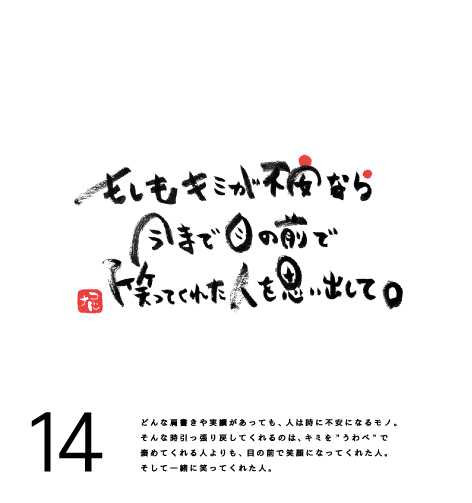 もしもキミが不安なら
今まで目の前で
笑ってくれた人を思い出して。
14
どんな肩書きや実績があっても、人は時に不安になるモノ。
そんな時引っ張り戻してくれるのは、キミを"うわべ"で
褒めてくれる人よりも、目の前で笑顔になってくれた人。
そして一緒に笑ってくれた人。